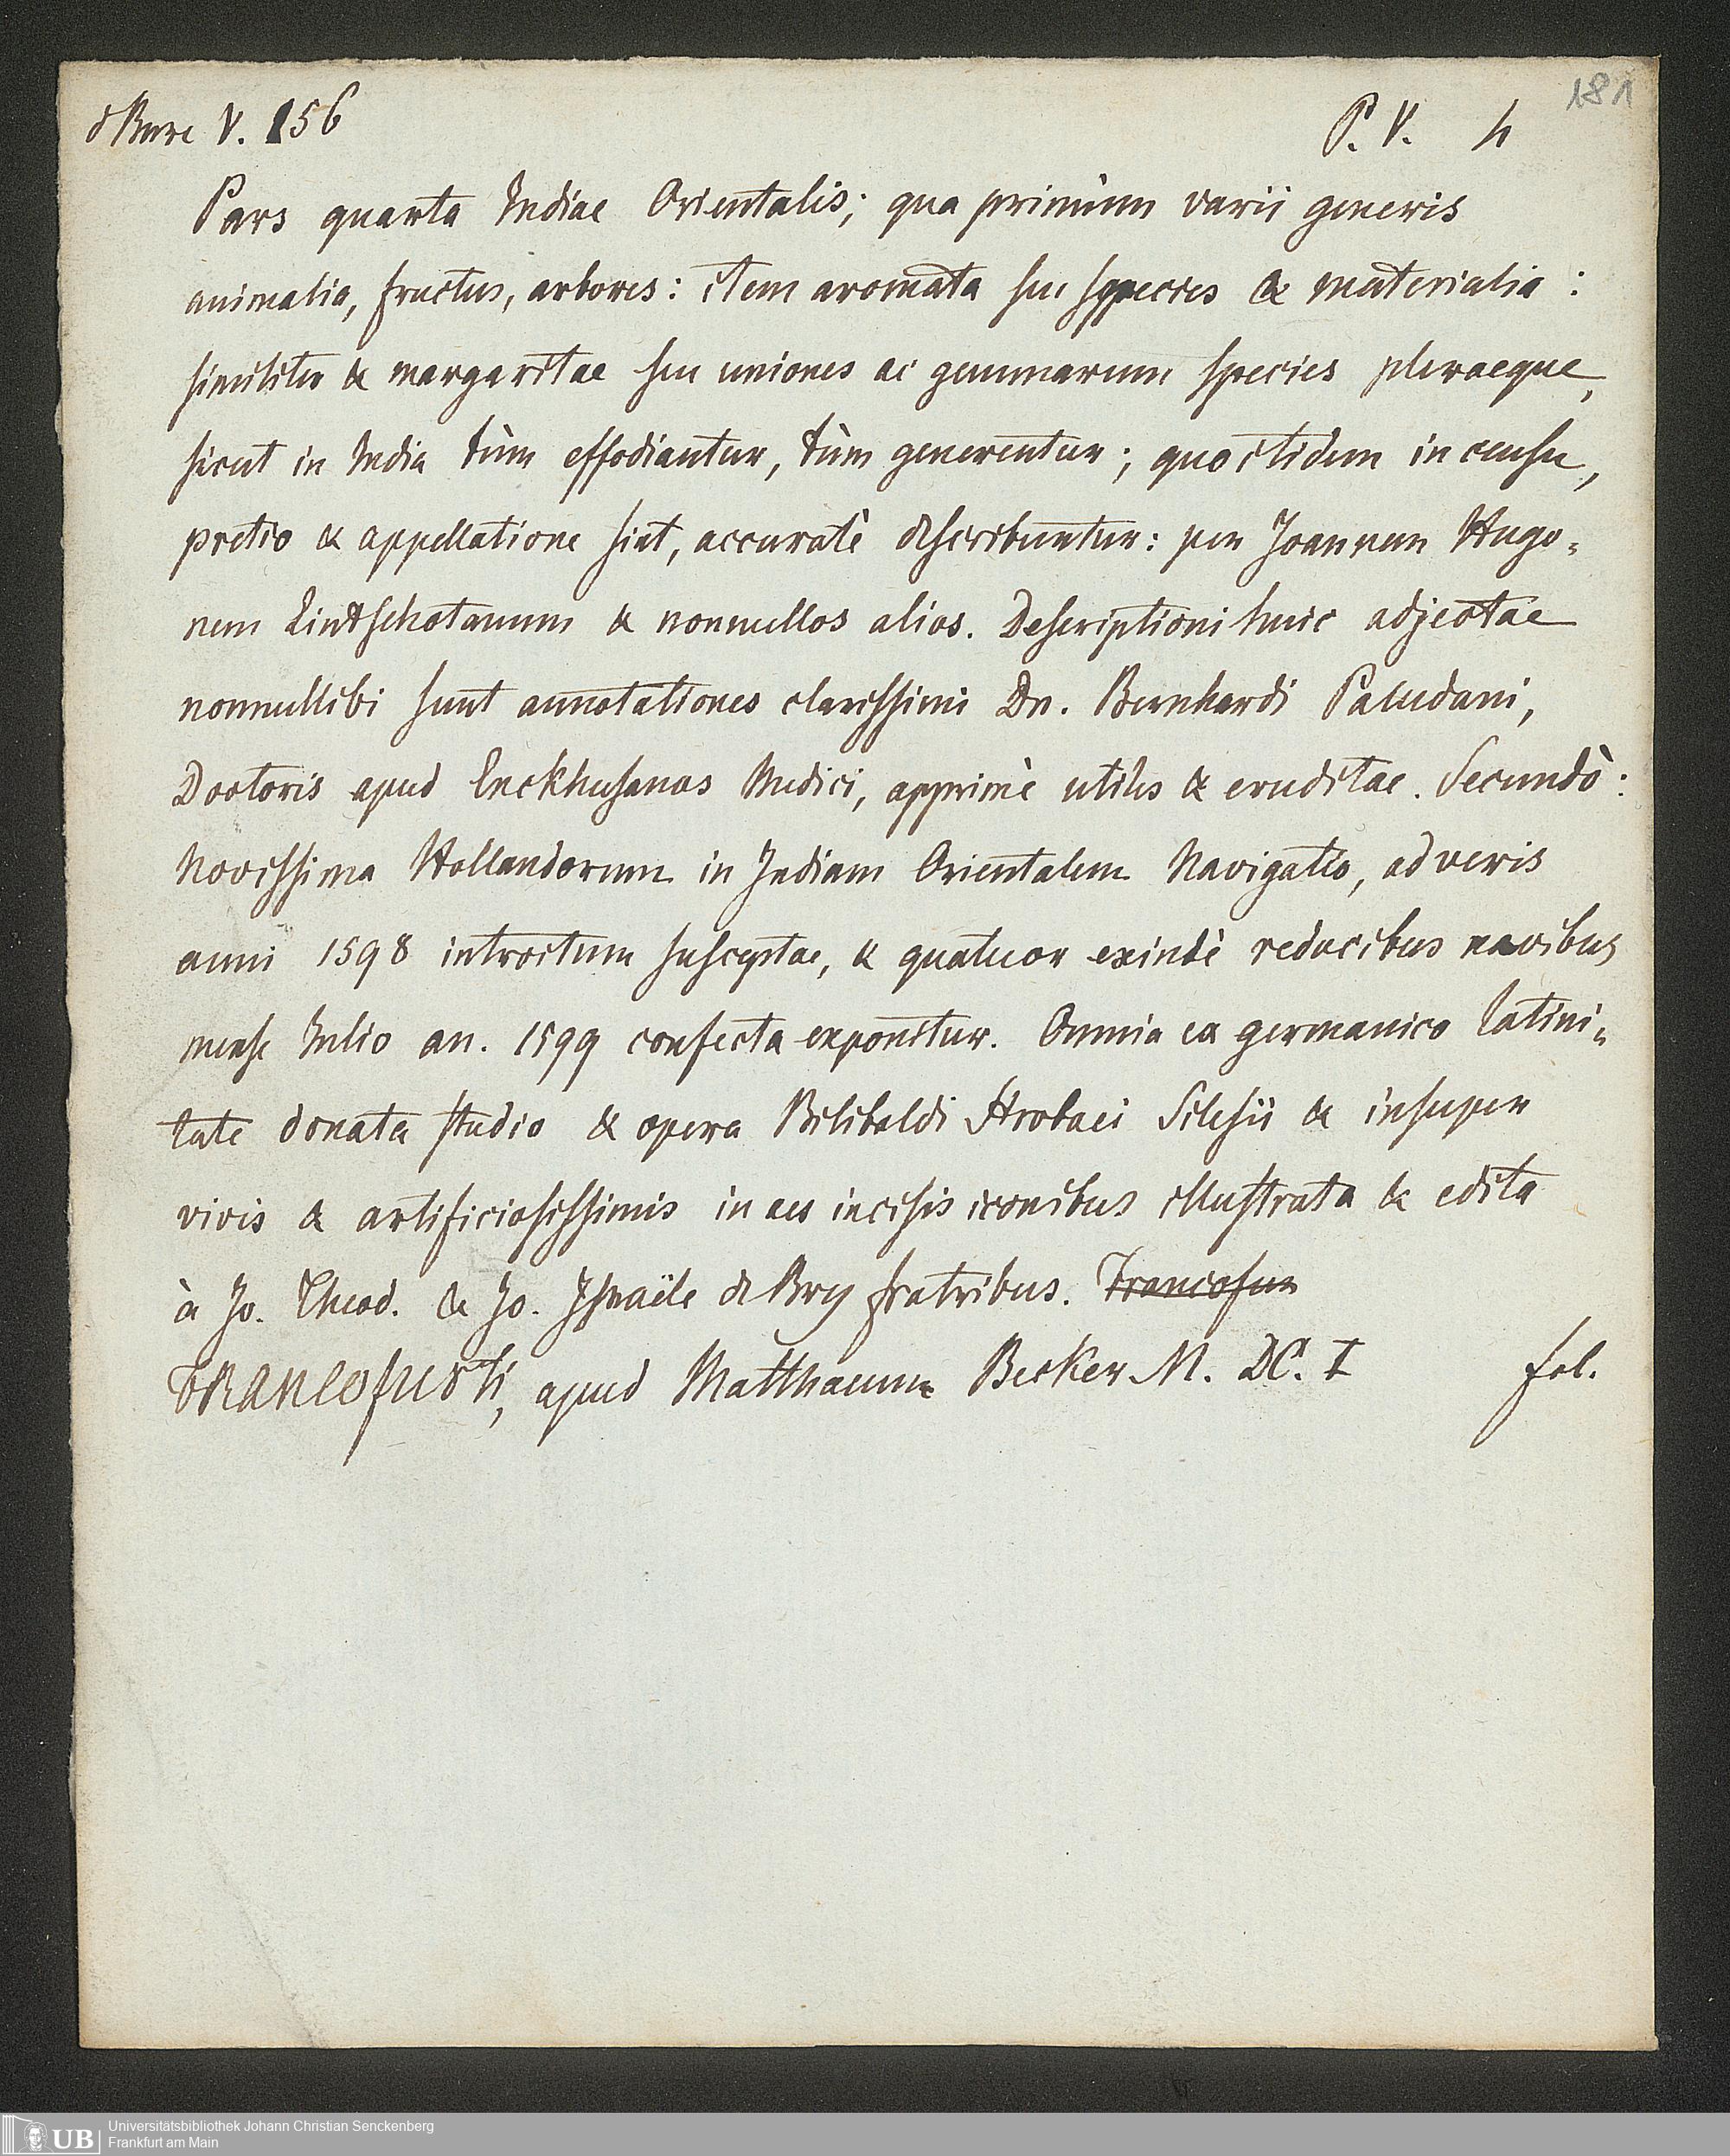 181
de Bure V. 156 P. V. 4
Pars quarta Indiae Orientalis; qua primùm varii generis
animalia, fructus, arbores: item aromata seu species & materialia:
similiter & margaritae seu uniones ac gemmarum species pleraeque,
sicut in India tùm effodiantur, tùm generentur; quo itidem in censu,
pretio & appellatione sint, accuratè describuntur: per Joannem Hugo-
nem Lintschotanum & nonnullos alios. Descriptioni huic adjectae
nonnullibi sunt annotationes clarissimi Dn. Bernhardi Paludani,
Doctoris apud Enckhusanos Medici, apprimè utiles & eruditae. Secundò:
Novissima Hollandorum in Indiam Orientalem Navigatio, ad veris
anni 1598 introitum susceptae, & quatuor exindè reducibus navibus
mense Julio an. 1599 confecta exponitur. Omnia ex germanico latini-
tate donata studio & opera Bilibaldi Strobaei Silesii & insuper
vivis & artificiosissimis in aes incisis iconibus illustrata & edita
à Jo. Theod. & Jo. Israële de Bry fratribus. Francofur
FRANCofurti, apud Matthaeum Becker M. DC. I fol.
UB Universitätsbibliothek Johann Christian Senckenberg
Frankfurt am Main